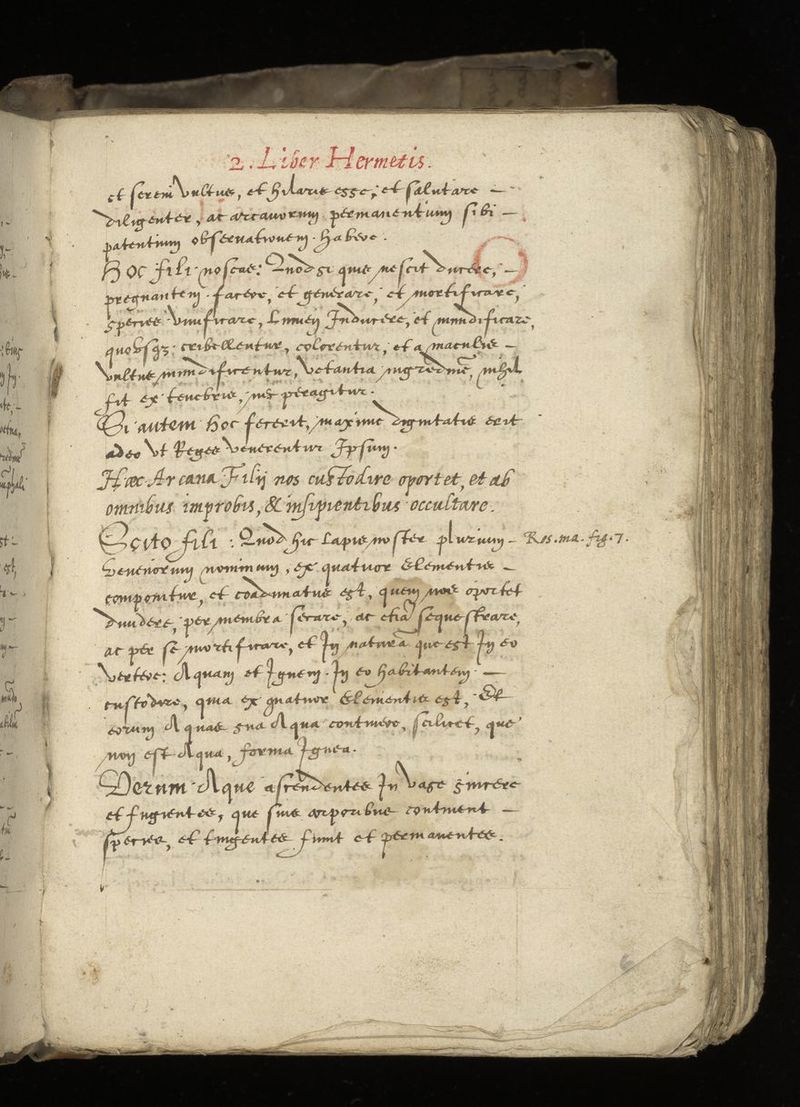 2. Liber Hermetis.
et sereni Vultus, et hilaris esse, et salutare –
diligenter, ac arcanorum permanentium sibi –
patentium obseruationem habere.
Hoc fili noscas: Quod si quis nescit ducere, –
pregnantem facere, et generare, et mortificare,
species Viuificare, Lumen Inducere, et mundificare,
quousq3 cribellentur, colorentur, et a maculis –
Vultus mundificentur, Vetantia mihil
fit ex tenebris, nis peragitur.
Si autem hoc fecerit, maxime dignitatis erit
adeo Vt Reges Venerentur Ipsum.
Hæc Arcana Filij nos custodire oportet, et ab
omnibus improbis, & insipientibus occultare.
Scito fili: Quod hic Lapis noster plurium –
Ros. ma. fig. 7.
Veneriorum nominum, ex quatuor Elementis –
componitur, et coadunatus est, quem nos oportet
diuidere, per membra secare, ac etiā sequestrare,
ac per se mortificare, et In naturā que est In eo
Vertere: Aquam et Ignem In eo habitantem –
custodire, quia ex quatuor Elementis est, Et
eorum Aquas sua Aqua continere, scilicet, que
non est Aqua, forma Ignea.
Verum Aque ascendentes In Vase sincere
et fugientes, que suis corporibus continent –
species, et tingentes fiunt et permanentes.